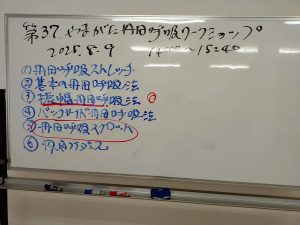 第37.やまがた丹田呼吸ワークショップ
2025.8.9 15:40
①丹田呼吸ストレッチ
②基本の丹田呼吸法
③振幅丹田呼吸法
④バックレイズ丹田呼吸法
⑤丹田呼吸スクワット
⑥